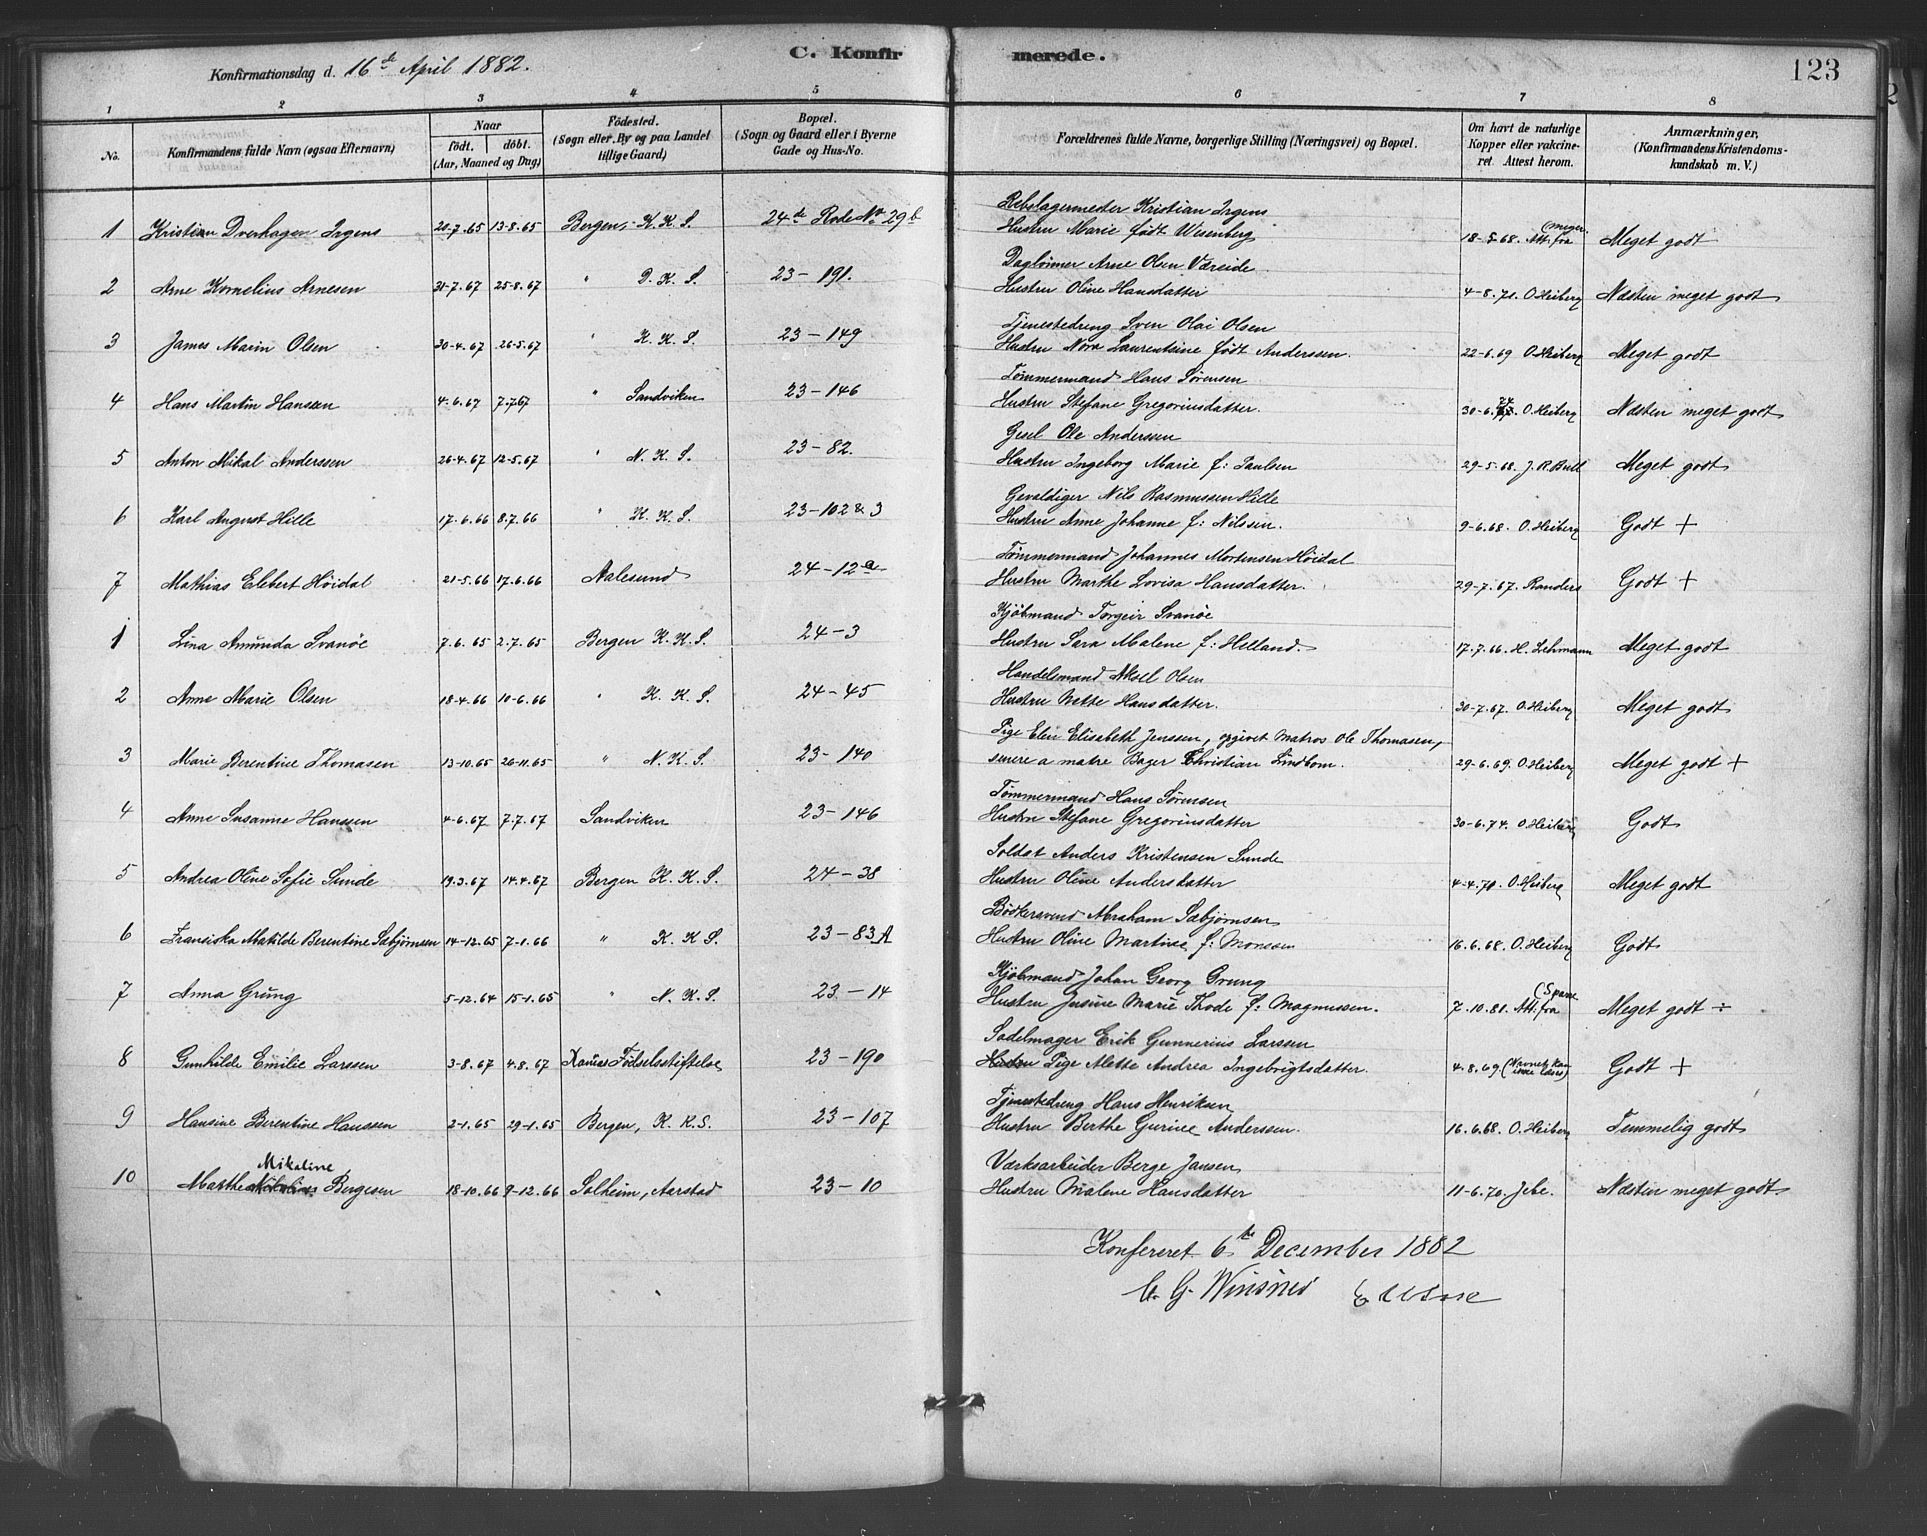 Konfirmationsdag d. 16de April 1882.
C. Konfirmerede.
123
1 2 3 4 5 6 7 8
No.
Konfirmandens fulde Navn (ogsaa Efternavn)
Naar
födt. döbt.
(Aar, Maaned og Dag)
Födested.
(Sogn eller By og paa Landet
tillige Gaard)
Bopæl.
(Sogn og Gaard eller i Byerne
Gade og Hus-No.
Forældrenes fulde Navne, borgerlige Stilling (Næringsvei) og Bopæl.
Om havt de naturlige
Kopper eller vakcine-
ret. Attest herom.
Anmærkninger,
(Konfirmandens Kristendoms-
kundskab m. V.)
Rebslagermester Kristian Irgens
1 Kristian Dverhagen Irgens 20-7.65 13-8.65 Bergen, K. K. S. 24de Rode No 29b Hustru Marie født Wesenberg 18-5.68. Att. fra (Meyer. Meget godt
Daglönner Arne Olsen Væreide
2 Arne Kornelius Arnesen 31-7.67 25-8.67 " D. K. S. 23-191. Hustru Oline Hansdatter 4-8.71. O. Heiberg Næsten meget godt
Tjenestedreng Sven Olai Olsen
3 James Marin Olsen 30-4.67 26-5.67 " K. K. S. 23-149 Hustru Nora Laurentsine født Anderssen. 22-6.69 O. Heiberg Meget godt
Tömmermand Hans Sørensen
4 Hans Martin Hanssen 4-6.67 7.7.67 " Sandviken 23-146 Hustru Stefane Gregoriusdatter. 30-6.74 O. Heiberg Næsten meget godt
Gesel Ole Anderssen
5 Anton Mikal Anderssen 26-4.67 12-5.67 " N. K. S. 23-82. Hustru Ingeborg Marie f: Paulsen 29-5.68. J. R. Bull Meget godt
Gevaldiger Nils Rasmussen Hille
6 Karl August Hille 17-6.66 8.7.66 " K. K. S. 23-102 & 3 Hustru Anne Johanne f: Nilssen. 9-6.68. O. Heiberg Godt +
Tömmermand Johannes Mortensen Höidal
7 Mathias Elebert Höidal 21-5.66 17.6.66 Aalesund 24-12a Hustru Marthe Lovisa Hansdatter. 29-7.67. Randers Godt +
Kjöbmand Torgeir Svanöe
1 Lina Amunda Svanöe 7.6.65 2.7.65 Bergen K. K. S. 24-3 Hustru Sara Malene f: Helland. 17.7.66. H. Lehmann Meget godt
Handelsmand Aksel Olsen
2 Anne Marie Olsen 18-4.66 10-6.66 " K. K. S. 24-45 Hustru Mette Hansdatter. 30-7.67. O. Heiberg Meget godt
Pige Elen Elisabeth Jenssen, opgivet Matros Ole Thomasen,
3 Marie Berentine Thomasen 13-10.65 26-11.65 " N. K. S. 23-140 senere a matre Bager Christian Lindbom. 29-6.69. O. Heiberg Meget godt +
Tömmermand Hans Sörensen
4 Anne Susanne Hanssen 4-6.67 7.7.67 Sandviken 23-146 Hustru Stefane Gregoriusdatter 30-6.74. O. Heiberg Godt
Soldat Anders Kristensen Sunde
5 Andrea Oline Sofie Sunde 19.3.67 14.4.67 Bergen K. K. S. 24-38 Hustru Oline Andersdatter 4-4.70. O. Heiberg Meget godt
Bödkersvend Abraham Sæbjörnsen
6 Franciska Matilde Berentine Sæbjörnsen 14-12.65 7-1.66 " K. K. S. 23-83A Hustru Oline Martine f: Monssen 16.6.68. O. Heiberg Godt
Kjöbmand Johan Georg Grung
7 Anna Grung 5-12.64 15-1.65 " N. K. S. 23-14 Hustru Jusine Marie Thode f: Magnussen. 7.10.81. Att. fra (Sparre Meget godt ÷
Sadelmager Erik Gunnerius Larssen
8 Gunhilde Emilie Larssen 3-8.67 4.8.67 Födselsstiftelse 23-190 Hustru Pige Alette Andrea Ingebrigtsdatter. 4.8.69. (Navnet kan ikke læses) Godt +
Tjenestedreng Hans Henriksen
9 Hansine Berentine Hanssen 2-1.65 29-1.65 Bergen, K. K. S. 23-107 Hustru Berthe Gurine Anderssen. 16.6.68. O. Heiberg Temmelig godt
Mikaline
Værksarbeider Berge Jansen
10 Marthe Bergesen 18-10.66 9-12.66 Solheim, Aarstad 23-10 Hustru Malene Hansdatter 11-6.70. Jebe. Næsten meget godt
Konfereret 6te December 1882
C. G. Winsnes